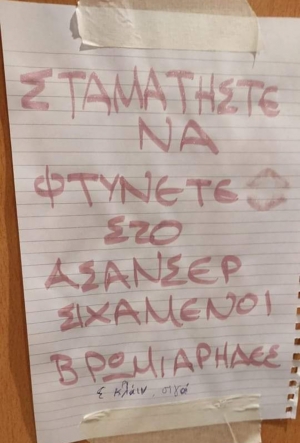 ΣΤΑΜΑΤΗΣΤΕ
ΝΑ
ΦΤΥΝΕΤΕ
ΣΤΟ
ΑΣΑΝΣΕΡ
ΣΙΧΑΜΕΝΟΙ
ΒΡΩΜΙΑΡΗΔΕΣ
ε κλάιν σιγά